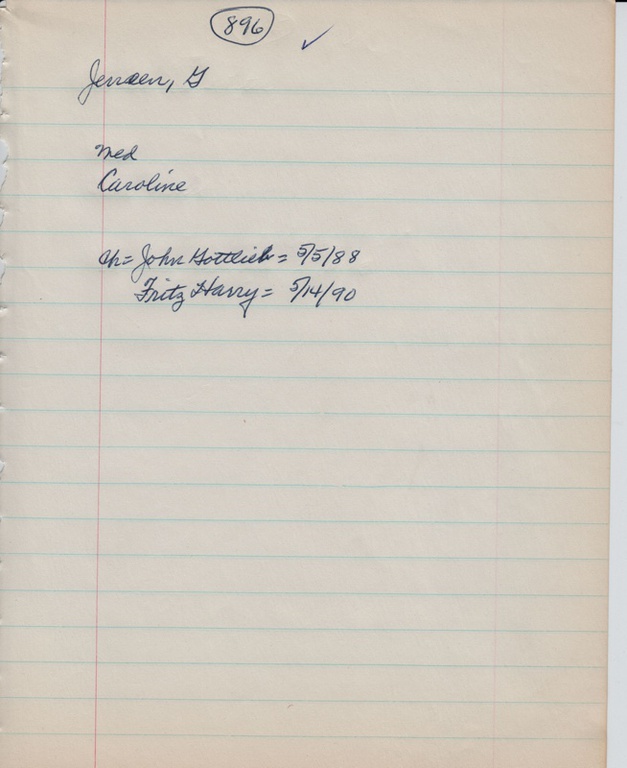 896 ✓
Jensen, G
med
Caroline
ch= John Gottlieb = 5/5/88
Fritz Harry = 5/14/90